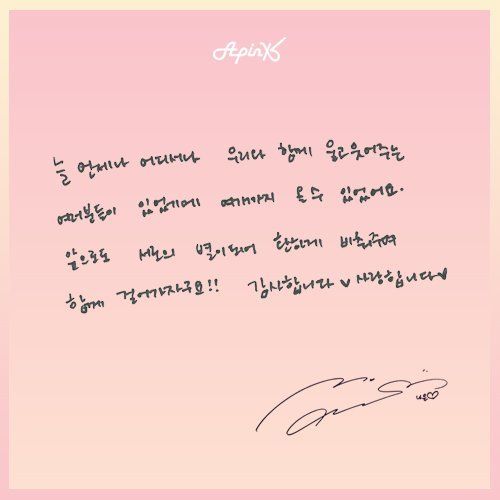 Apink
늘 언제나 어디서나 우리와 함께 울고웃어주는
여러분들이 있었기에 여기까지 올수 있었어요.
앞으로도 서로의 별이되어 환하게 비춰주며
함께 걸어가자구요!! 감사합니다♥사랑합니다♥